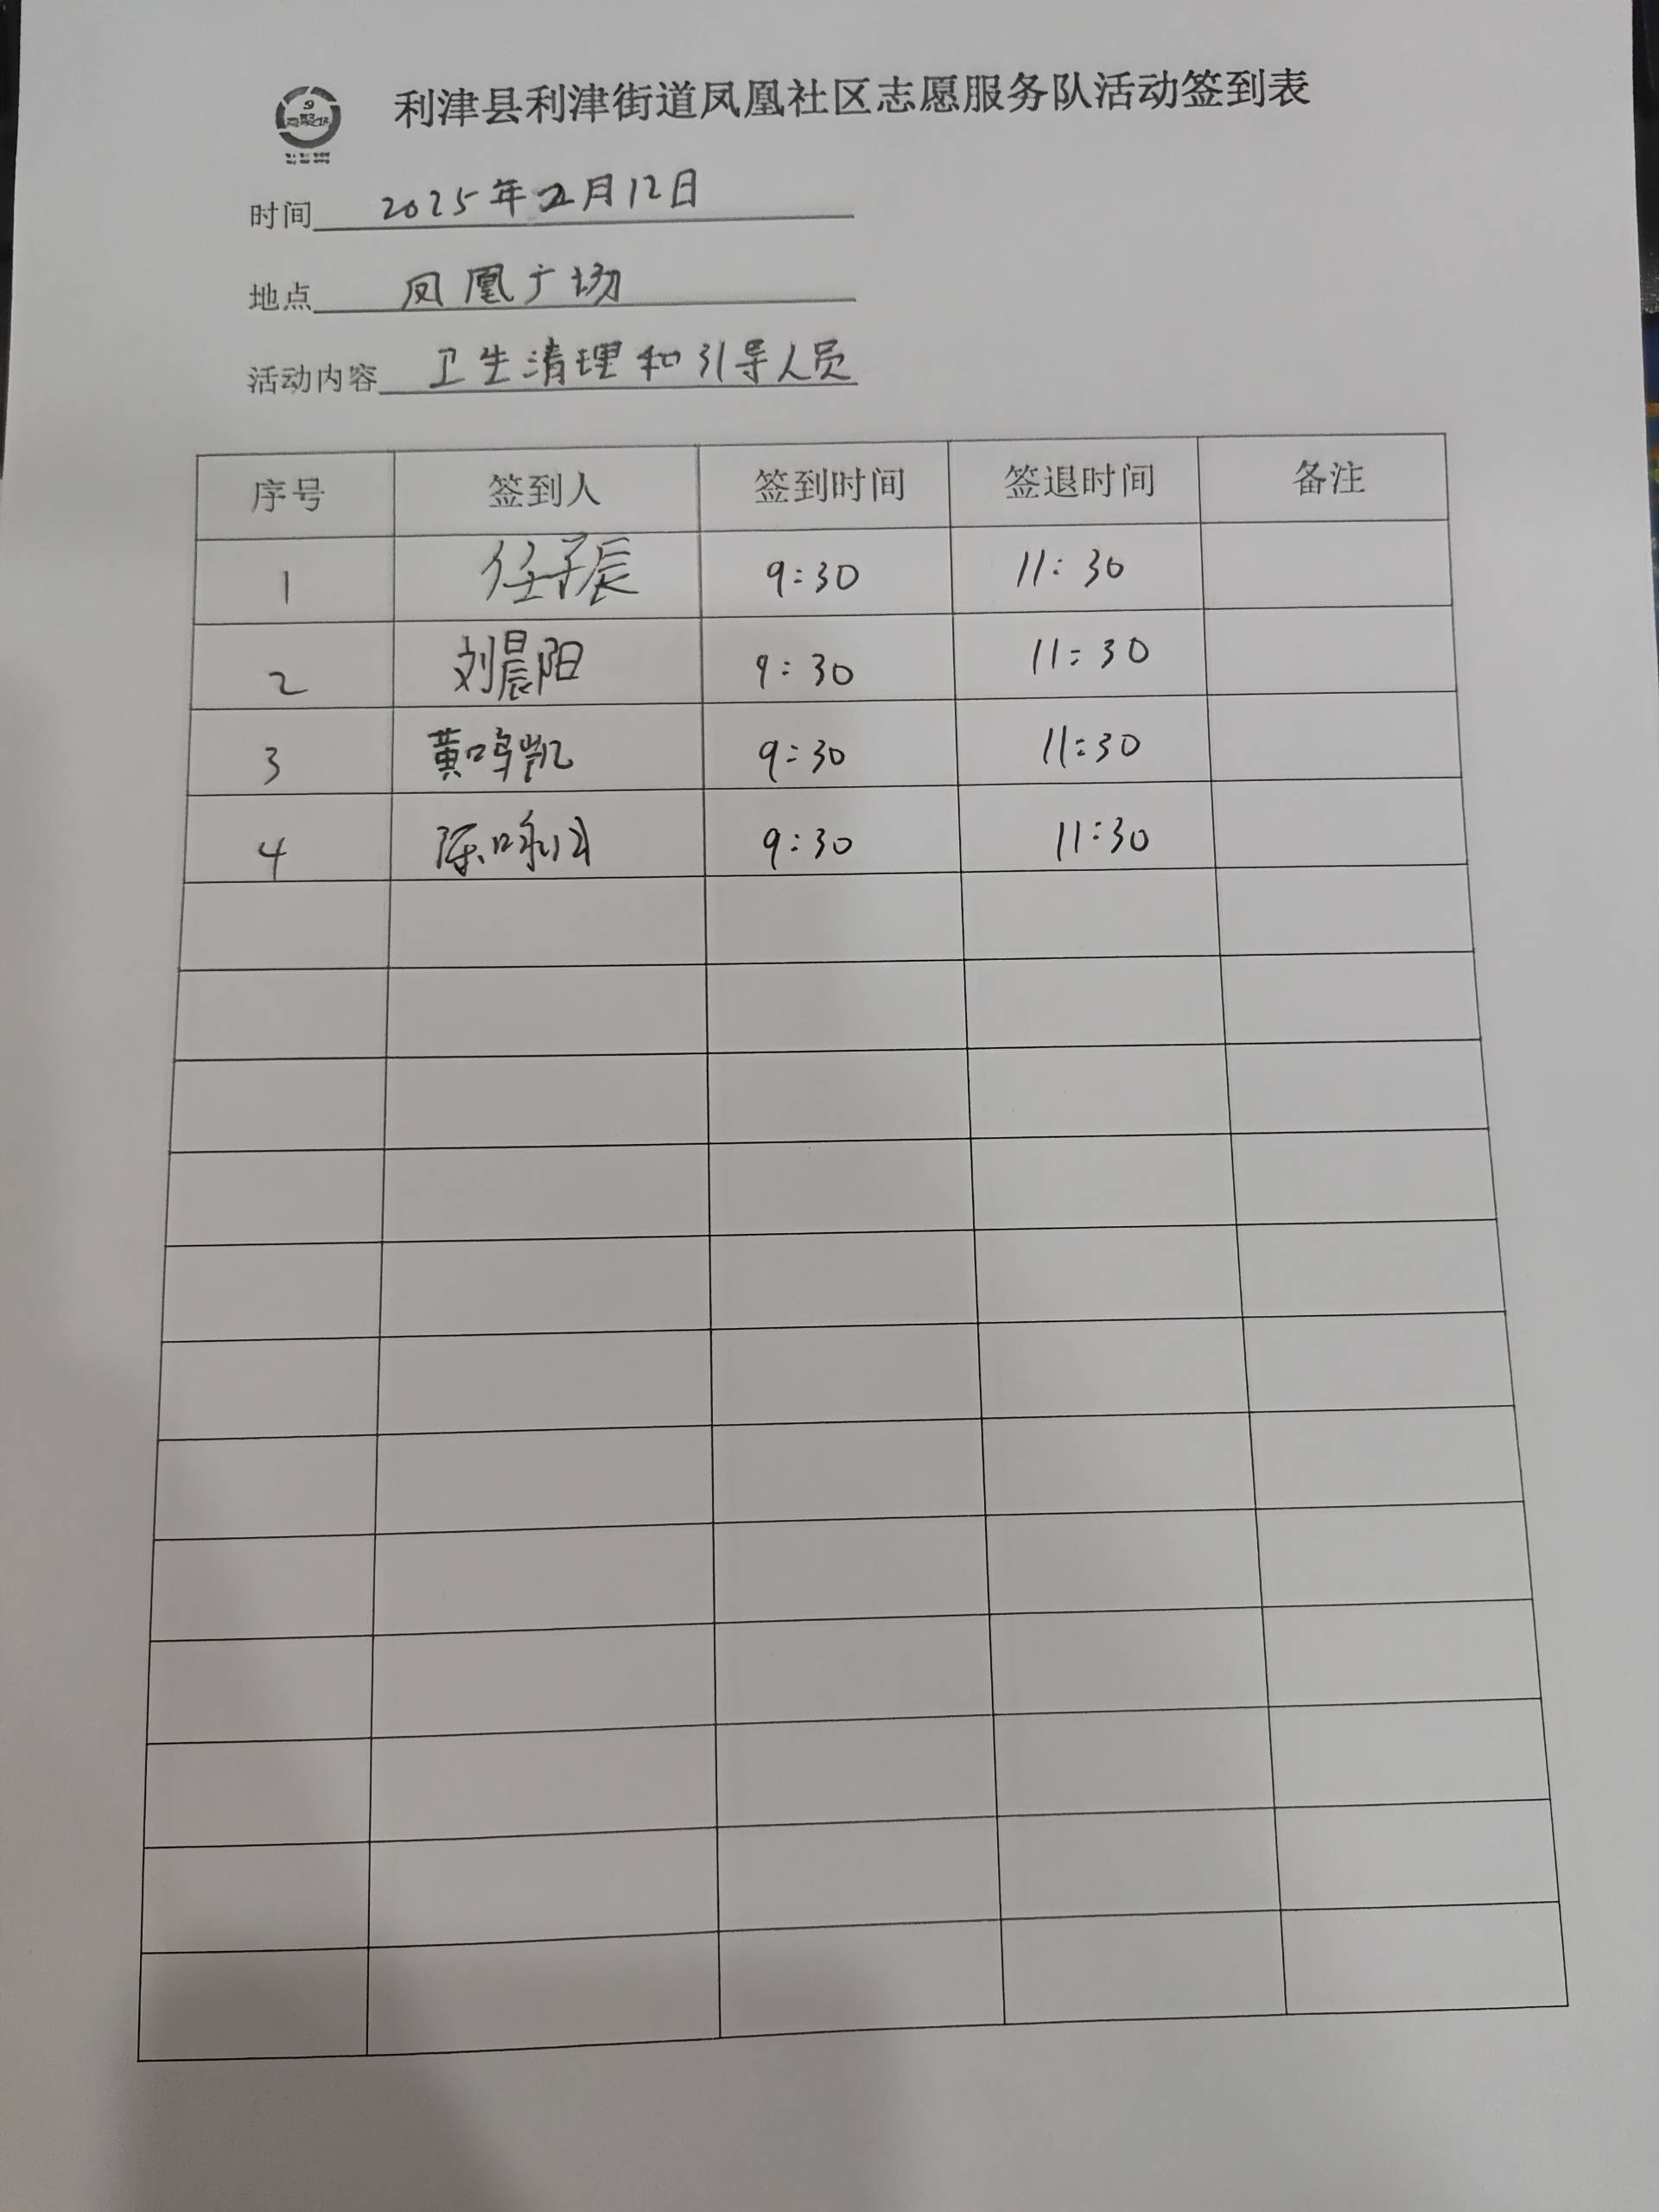 利津县利津街道凤凰社区志愿服务队活动签到表
时间 2025年2月12日
地点 凤凰广场
活动内容 卫生清理和引导人员
序号 签到人 签到时间 签退时间 备注
1 任子辰 9:30 11:30
2 刘晨阳 9:30 11:30
3 黄鸣凯 9:30 11:30
4 陈咏 9:30 11:30